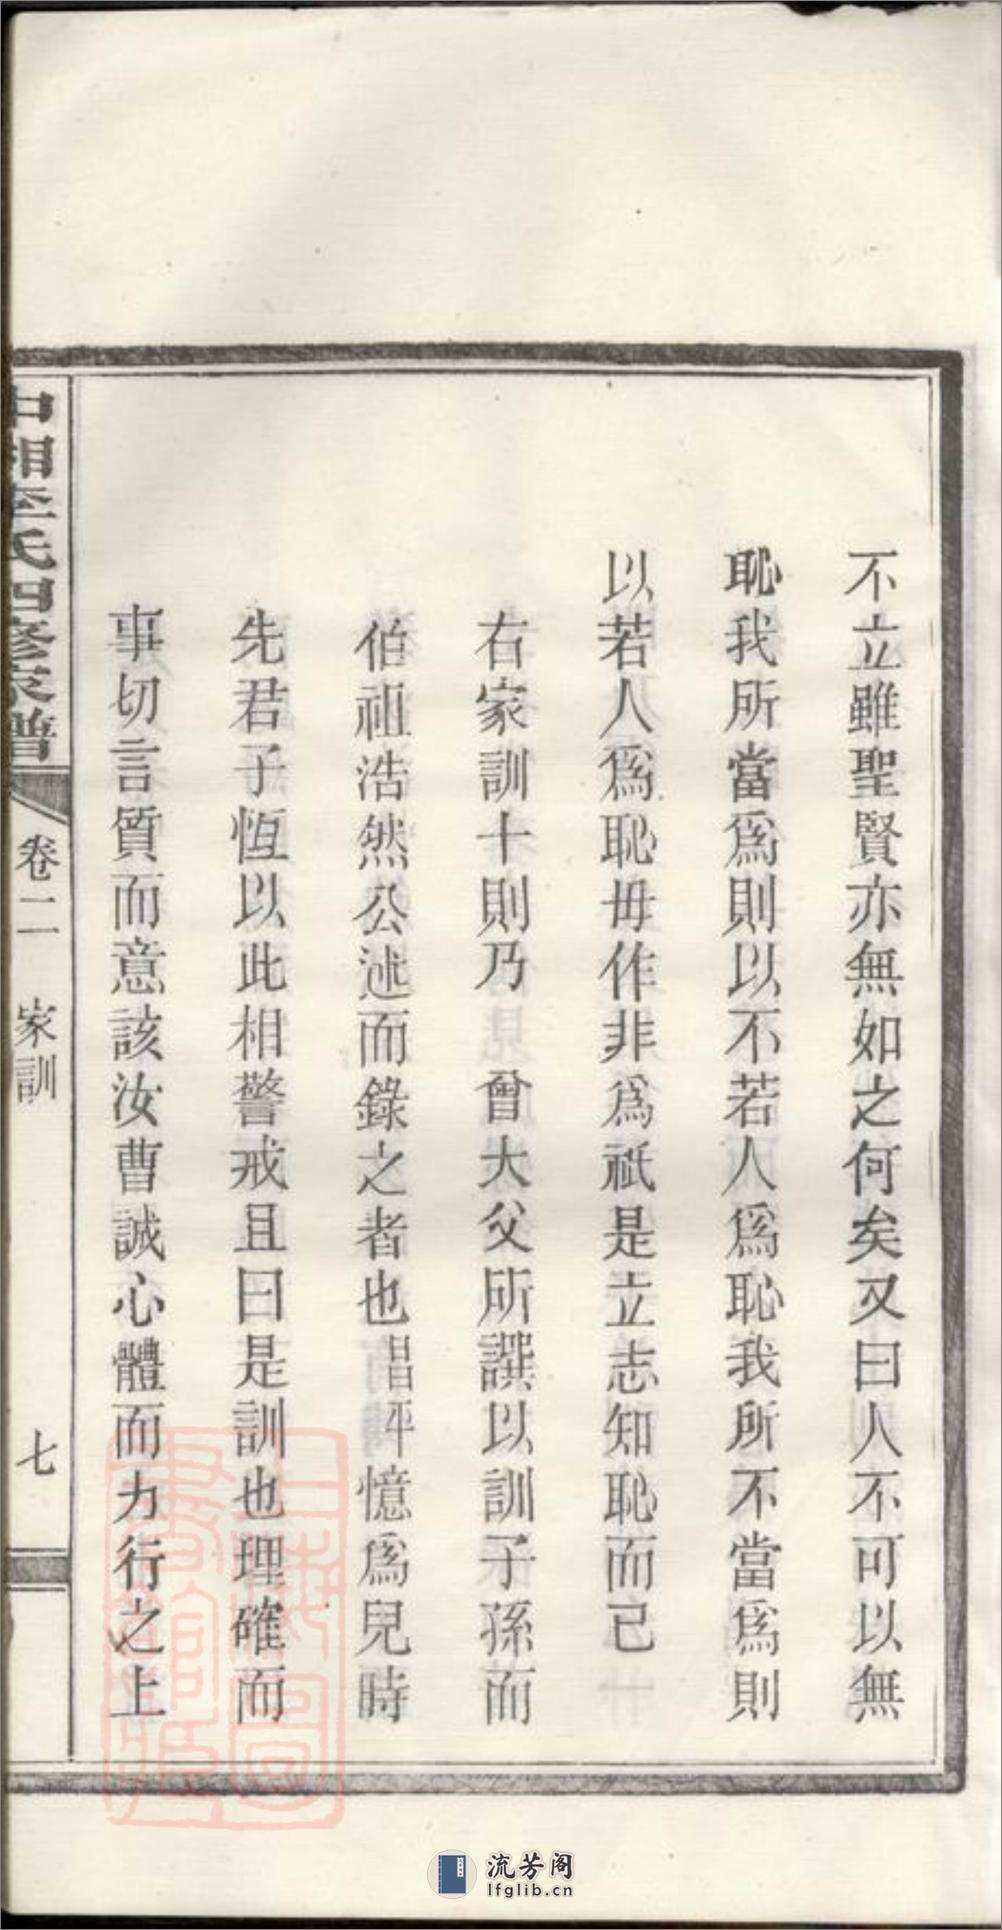 不立雖聖賢亦無如之何矣又曰人不可以無
恥我所當爲則以不若人爲恥我所不當爲則
以若人爲恥毋作非爲祇是立志知恥而已
右家訓十則乃　曾大父所譔以訓子孫而
伯祖浩然公述而錄之者也昌平憶爲兒時
先君子恆以此相警戒且曰是訓也理確而
事切言質而意該汝曹誠心體而力行之上
中湘李氏四修家譜
卷二　家訓
七
上海圖書館藏
流芳阁
lfglib.cn